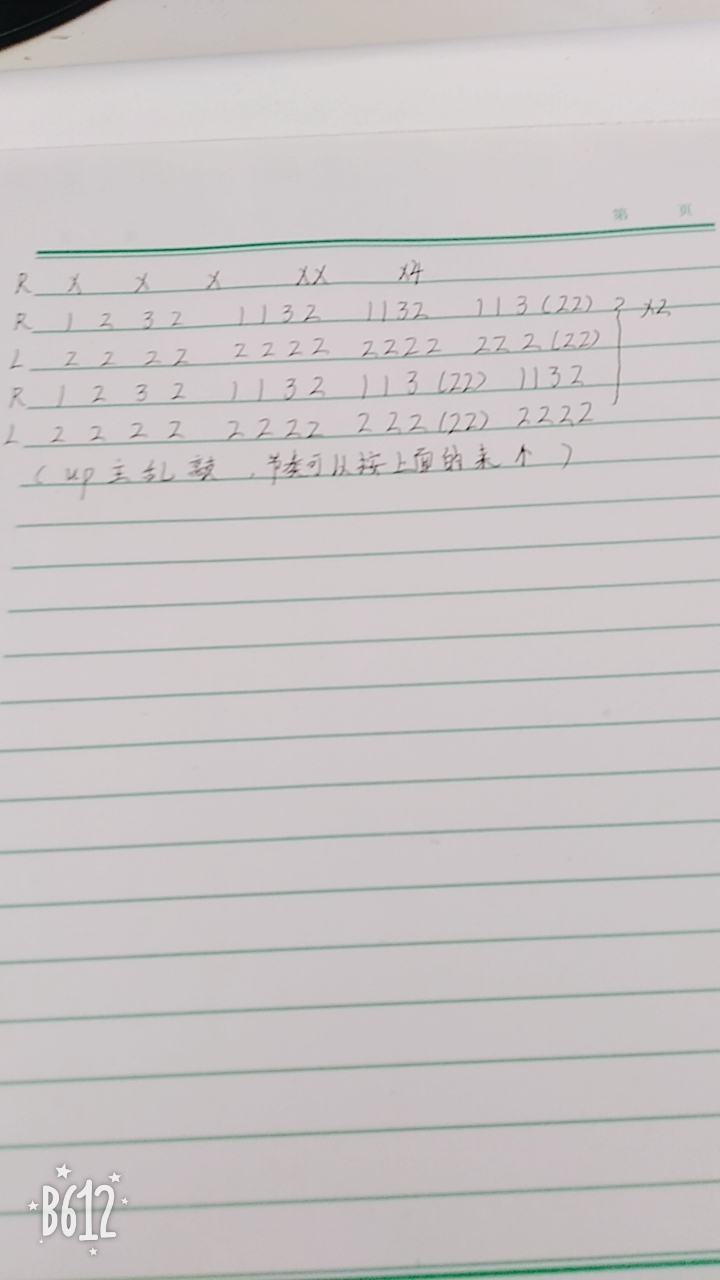 第 页
R X X X XX X4
R 1 2 3 2 1 1 3 2 1 1 3 2 1 1 3 (22) } x2
L 2 2 2 2 2 2 2 2 2 2 2 2 2 2 2 (22)
R 1 2 3 2 1 1 3 2 1 1 3 (22) 1 1 3 2
L 2 2 2 2 2 2 2 2 2 2 2 (22) 2 2 2 2
(up主乱敲,节奏可以按上面的来个)
B612